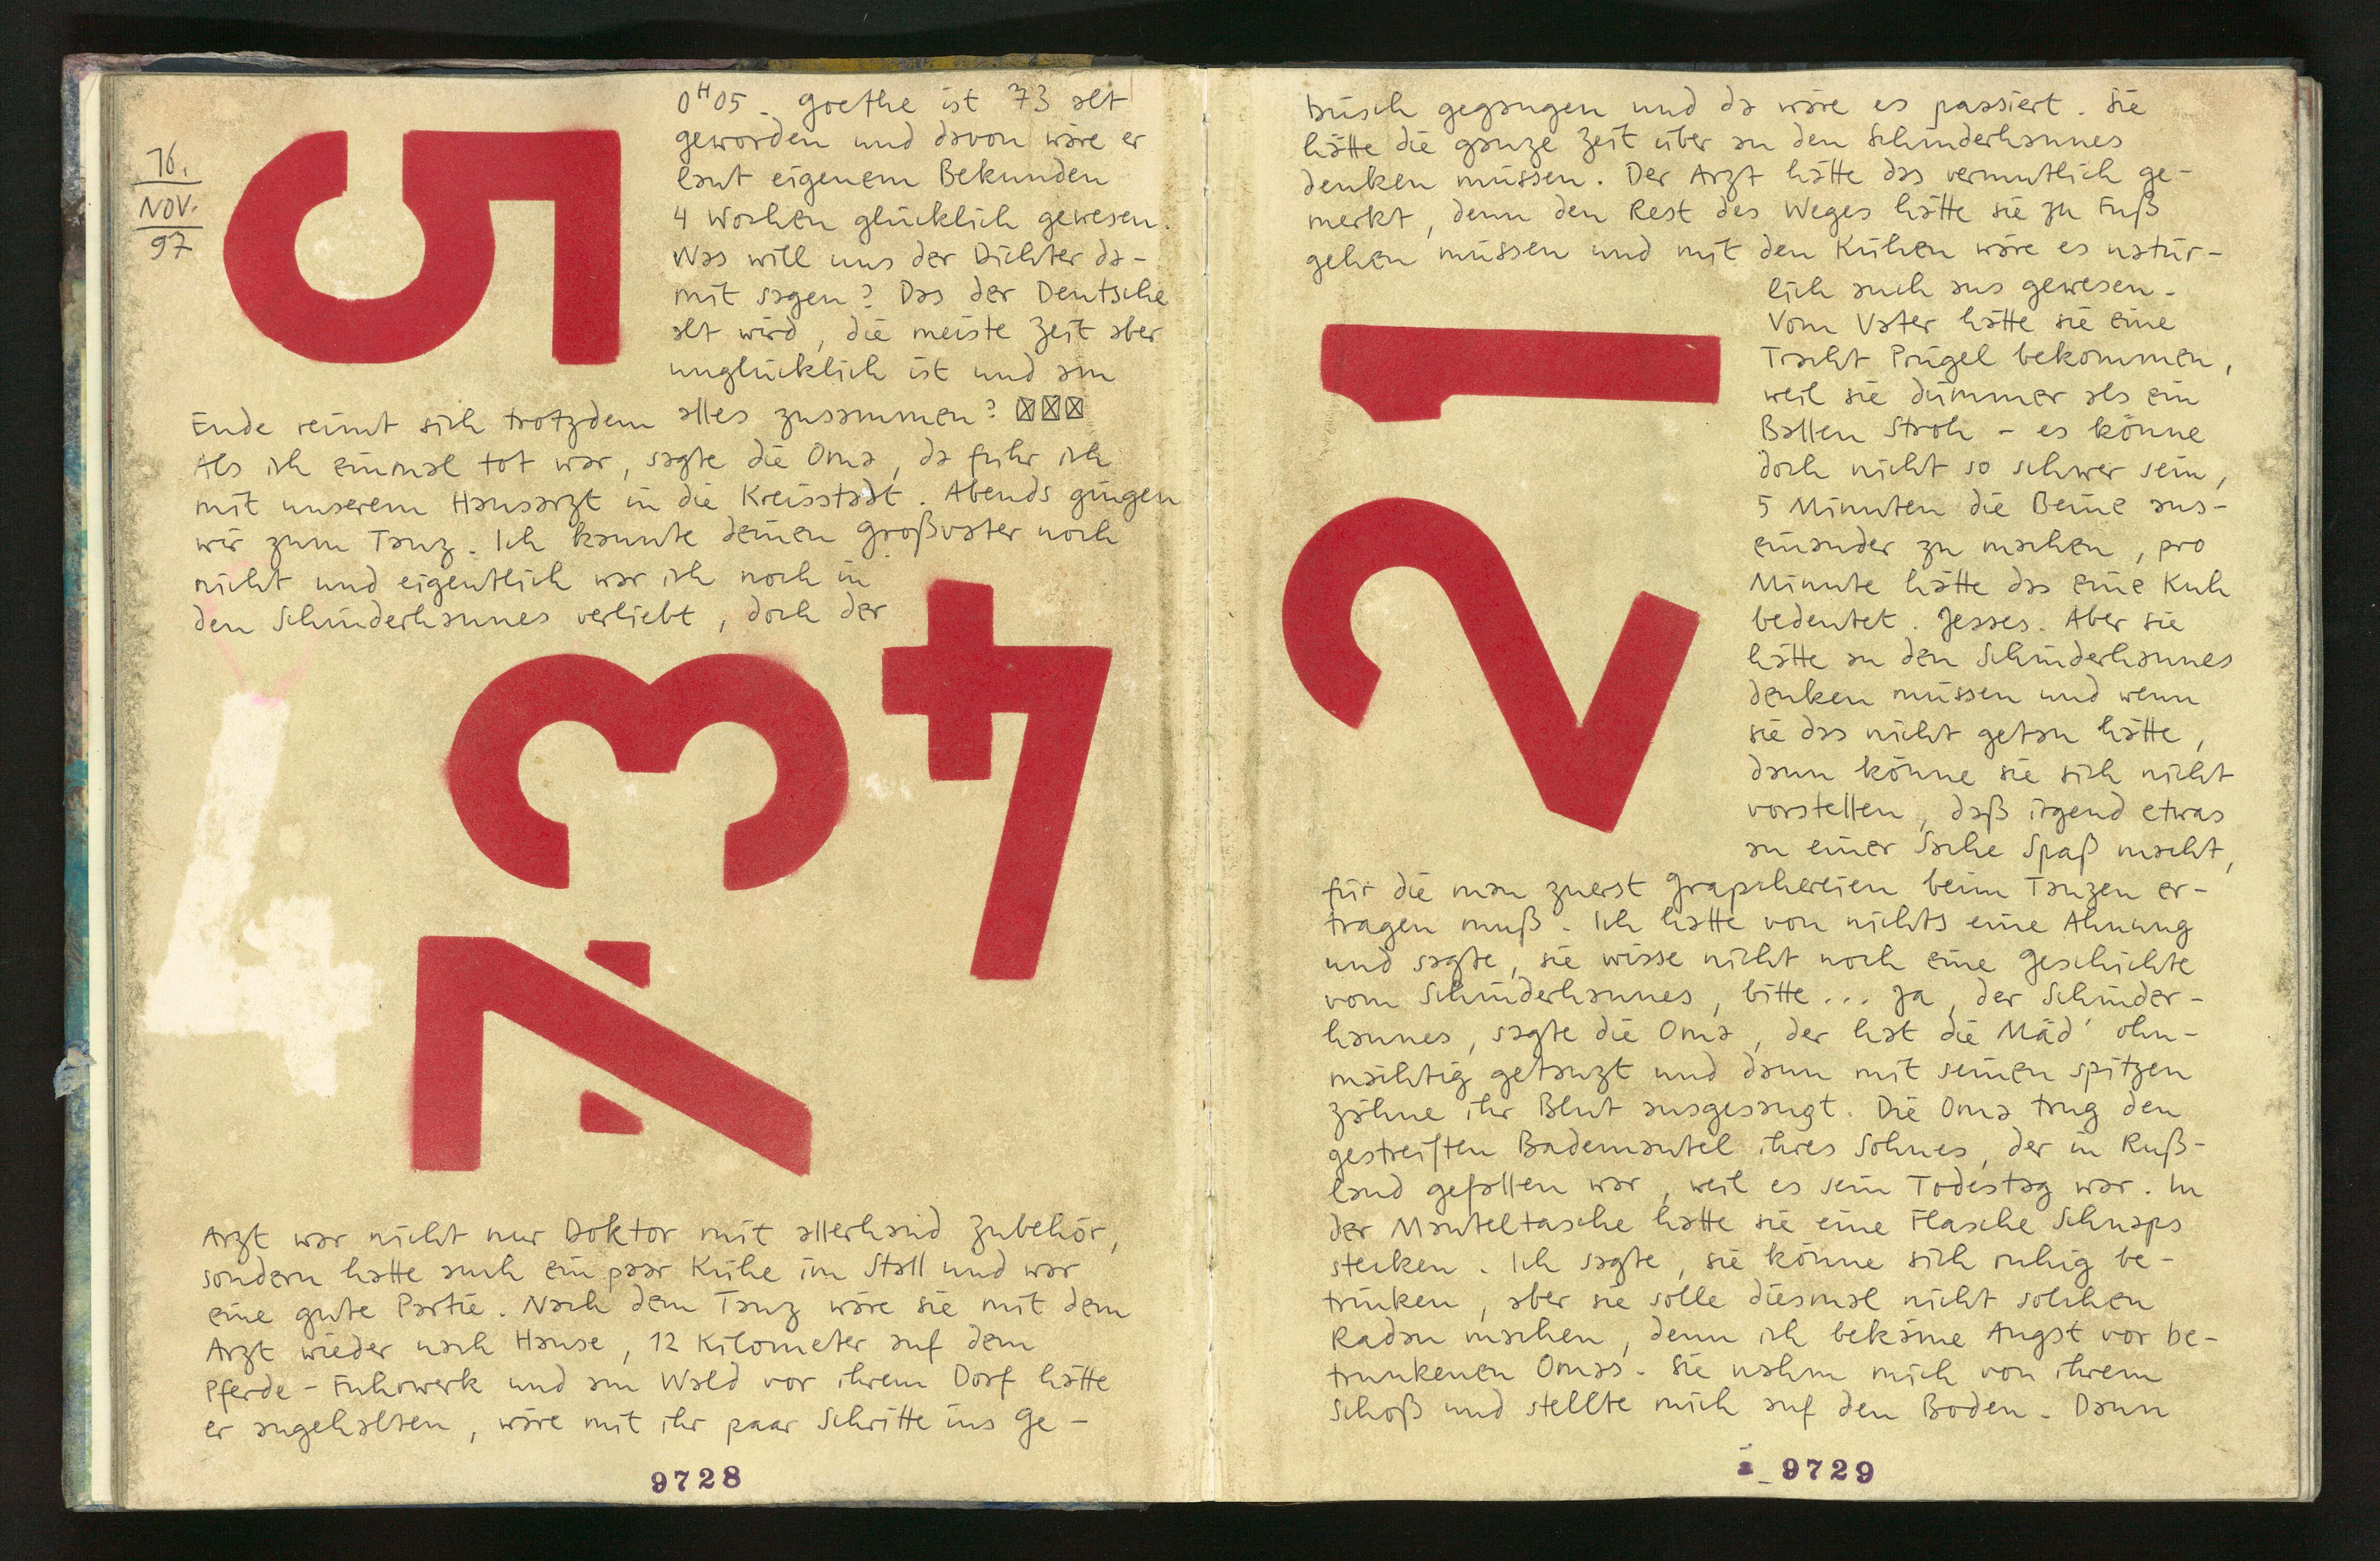 16.
NOV.
97
5
0H05. Goethe ist 73 alt
geworden und davon wäre er
laut eigenem Bekunden
4 Wochen glücklich gewesen.
Was will uns der Dichter da-
mit sagen? Das der Deutsche
alt wird, die meiste Zeit aber
unglücklich ist und am
Ende reimt sich trotzdem alles zusammen? ☒☒☒
Als ich einmal tot war, sagte die Oma, da fuhr ich
mit unserem Hausarzt in die Kreisstadt. Abends gingen
wir zum Tanz. Ich kannte deinen Großvater noch
nicht und eigentlich war ich noch in
den Schinderhannes verliebt, doch der
4
3
4
7
Arzt war nicht nur Doktor mit allerhand Zubehör,
sondern hatte auch ein paar Kühe im Stall und war
eine gute Partie. Nach dem Tanz wäre sie mit dem
Arzt wieder nach Hause, 12 Kilometer auf dem
Pferde-Fuhrwerk und am Wald vor ihrem Dorf hätte
er angehalten, wäre mit ihr paar Schritte ins Ge-
9728
büsch gegangen und da wäre es passiert. Sie
hätte die ganze Zeit über an den Schinderhannes
denken müssen. Der Arzt hätte das vermutlich ge-
merkt, denn den Rest des Weges hätte sie zu Fuß
gehen müssen und mit den Kühen wäre es natür-
lich auch aus gewesen.
Vom Vater hätte sie eine
Tracht Prügel bekommen,
weil sie dümmer als ein
Ballen Stroh - es könne
doch nicht so schwer sein,
5 Minuten die Beine aus-
einander zu machen, pro
Minute hätte das eine Kuh
bedeutet. Jesses. Aber sie
hätte an den Schinderhannes
denken müssen und wenn
sie das nicht getan hätte,
dann könne sie sich nicht
vorstellen, daß irgend etwas
an einer Sache Spaß macht,
1
2
für die man zuerst Grapschereien beim Tanzen er-
tragen muß. Ich hatte von nichts eine Ahnung
und sagte, sie wisse nicht noch eine Geschichte
vom Schinderhannes, bitte... Ja, der Schinder-
hannes, sagte die Oma, der hat die Mäd' ohn-
mächtig getanzt und dann mit seinen spitzen
Zähne ihr Blut ausgesaugt. Die Oma trug den
gestreiften Bademantel ihres Sohnes, der in Ruß-
land gefallen war, weil es sein Todestag war. In
der Manteltasche hatte sie eine Flasche Schnaps
stecken. Ich sagte, sie könne sich ruhig be-
trinken, aber sie solle diesmal nicht solchen
Radau machen, denn ich bekäme Angst vor be-
trunkenen Omas. Sie nahm mich von ihrem
Schoß und stellte mich auf den Boden. Dann
9729